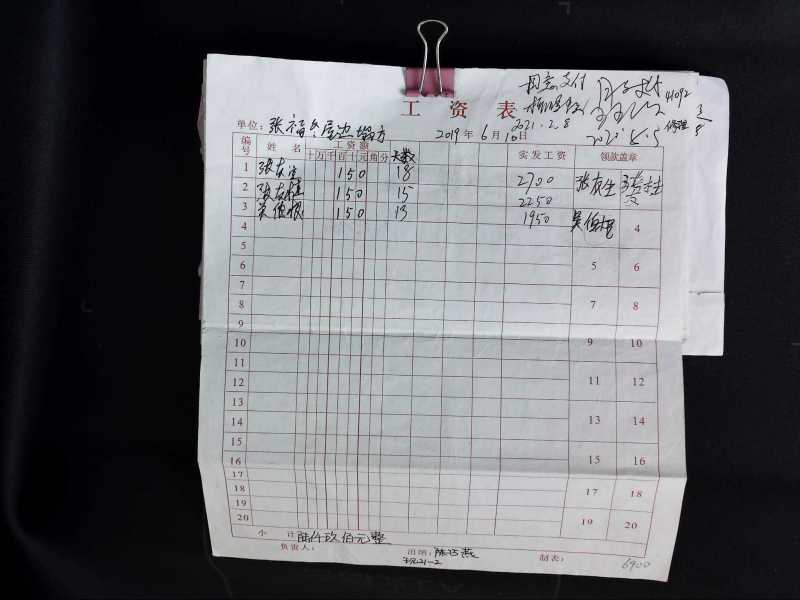 同意支付
2021.2.8
41092
工资表
单位：张福冬屋边塌方 2019年6月10日
编号 姓名 工资额 十万千百十元角分 天数 实发工资 领款盖章
1 张友生 150 18 2700 张友生
2 张友桂 150 15 2250
3 吴伯根 150 13 1950 吴伯根
4 4
5
6 5 6
7
8 7 8
9
10 9 10
11
12 11 12
13
14 13 14
15
16 15 16
17
18 17 18
19
20 19 20
小计 陆仟玖佰元整
负责人： 出纳： 制表：
6900